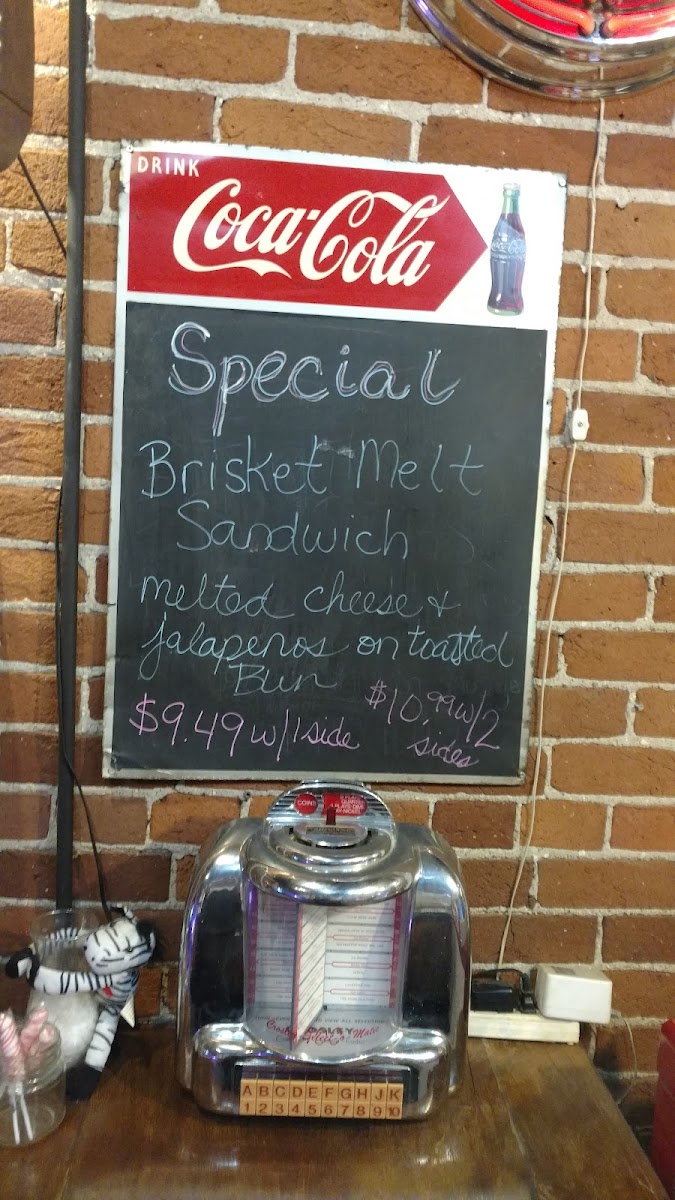 DRINK
Coca-Cola
Special
Brisket Melt
Sandwich
melted cheese &
jalapenos on toasted
Bun
$9.49 w/1 side
$10.99 w/2
sides
COINS
A B C D E F G H J K
1 2 3 4 5 6 7 8 9 10